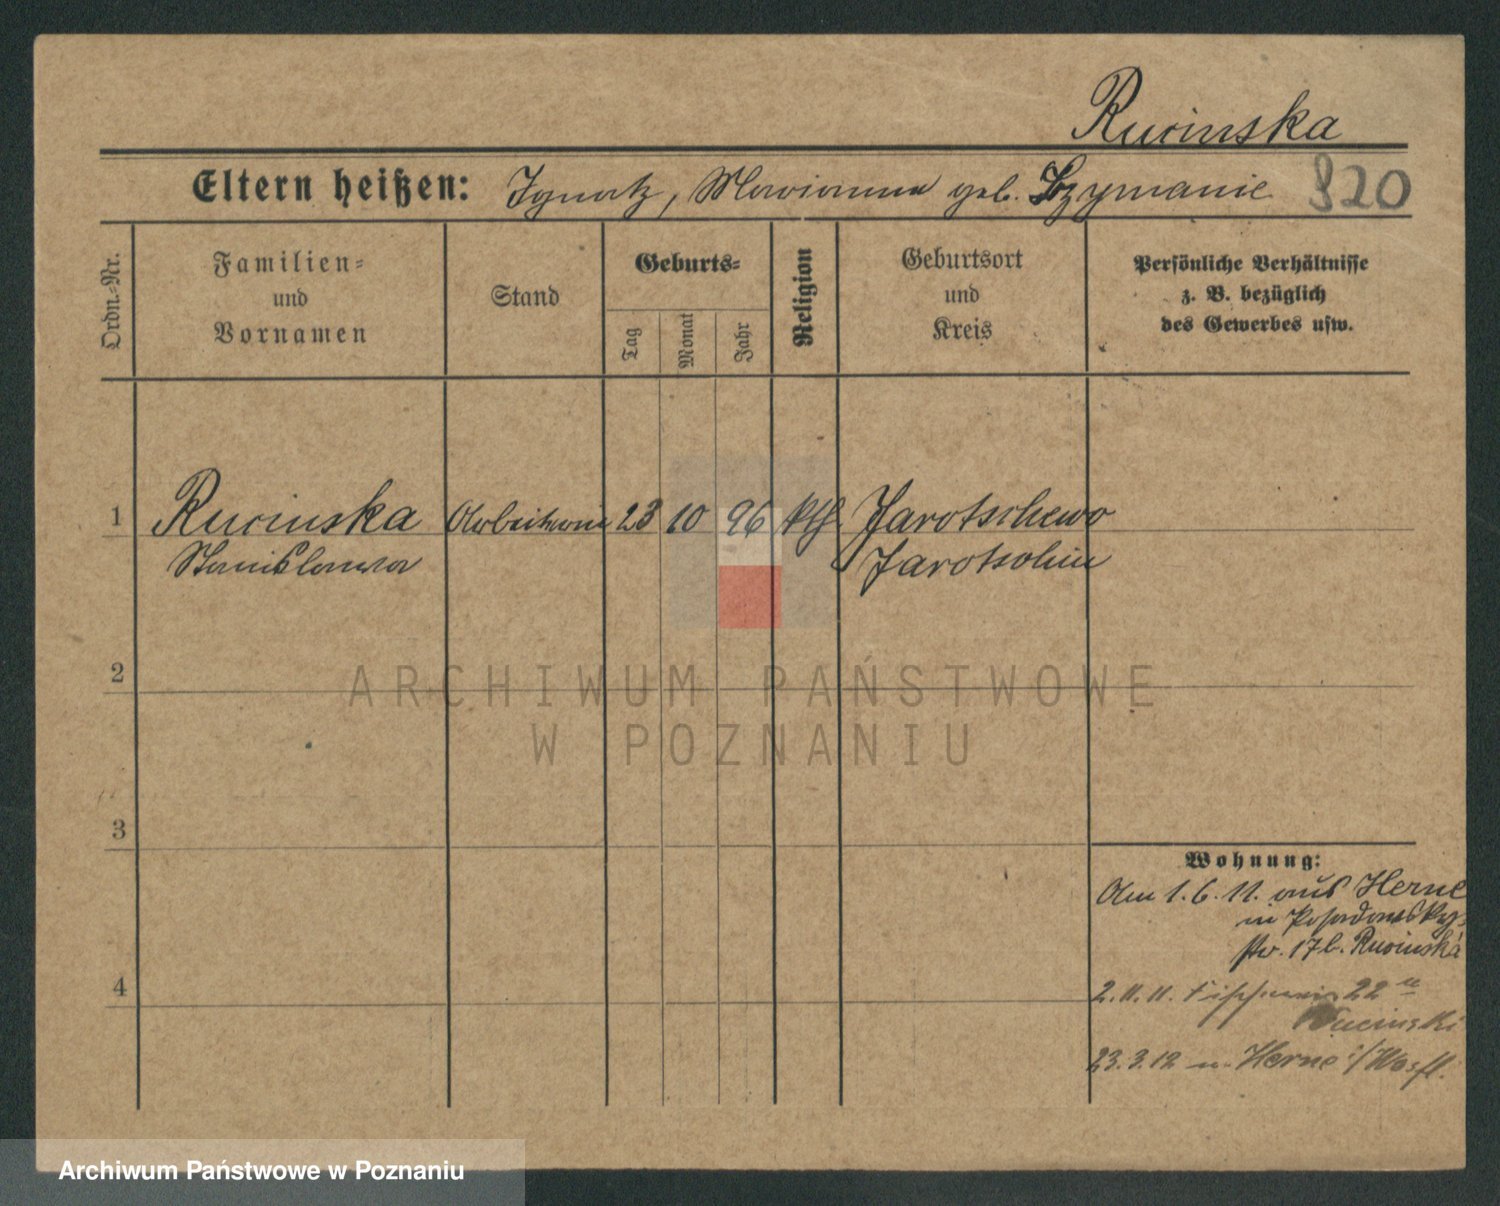 Rucinska
Eltern heißen: Ignatz, Marianna geb. Szymanic 820
Ordn.-Nr.
Familien-
und
Vornamen
Stand
Geburts-
Tag
Monat
Jahr
Religion
Geburtsort
und
Kreis
Persönliche Verhältnisse
z. B. bezüglich
des Gewerbes usw.
1 Rucinska Arbeiterin 23 10 96 kth. Jarotschewo
Stanislawa Jarotschin
2
ARCHIWUM PAŃSTWOWE
W POZNANIU
3
Wohnung:
Am 1.6.11. aus Herne
in Posadowsky-
str. 17 b. Rucinska
4
2.11.11. 22
Rucinski
23.3.12 n. Herne i/Westf.
Archiwum Państwowe w Poznaniu